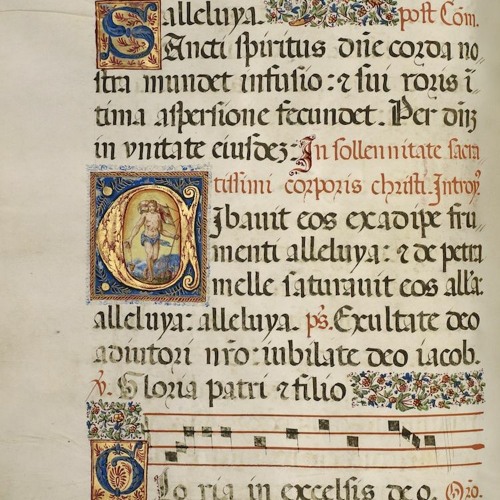 alleluya. post Com̄.
Sancti spiritus dn̄e corda no
stra mundet infusio: ⁊ sui roris ī
tima aspersione fecundet. Per dn̄ʒ
in vnitate eiusdeʒ. In sollennitate sacra
tissimi corporis christi. Introy.
Cibauit eos ex adipe fru
menti alleluya: ⁊ de petra
melle saturauit eos all'a:
alleluya: alleluya. ps. Exultate deo
adiutori nr̄o: iubilate deo iacob.
℣. Gloria patri ⁊ filio
Glo ria in excelsis deo.